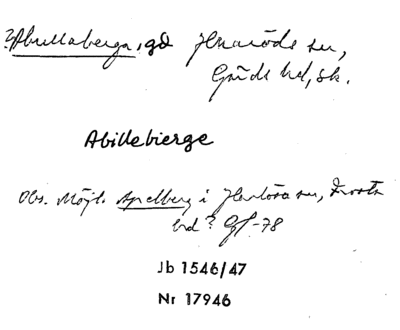 ?Abullaberga, gd Huaröds sn,
Gärds hd, Sk.
Abillebierge
Obs. Möjl. Apelberg i Harlösa sn, Frosta
hd? Gf -78
Jb 1546/47
Nr 17946